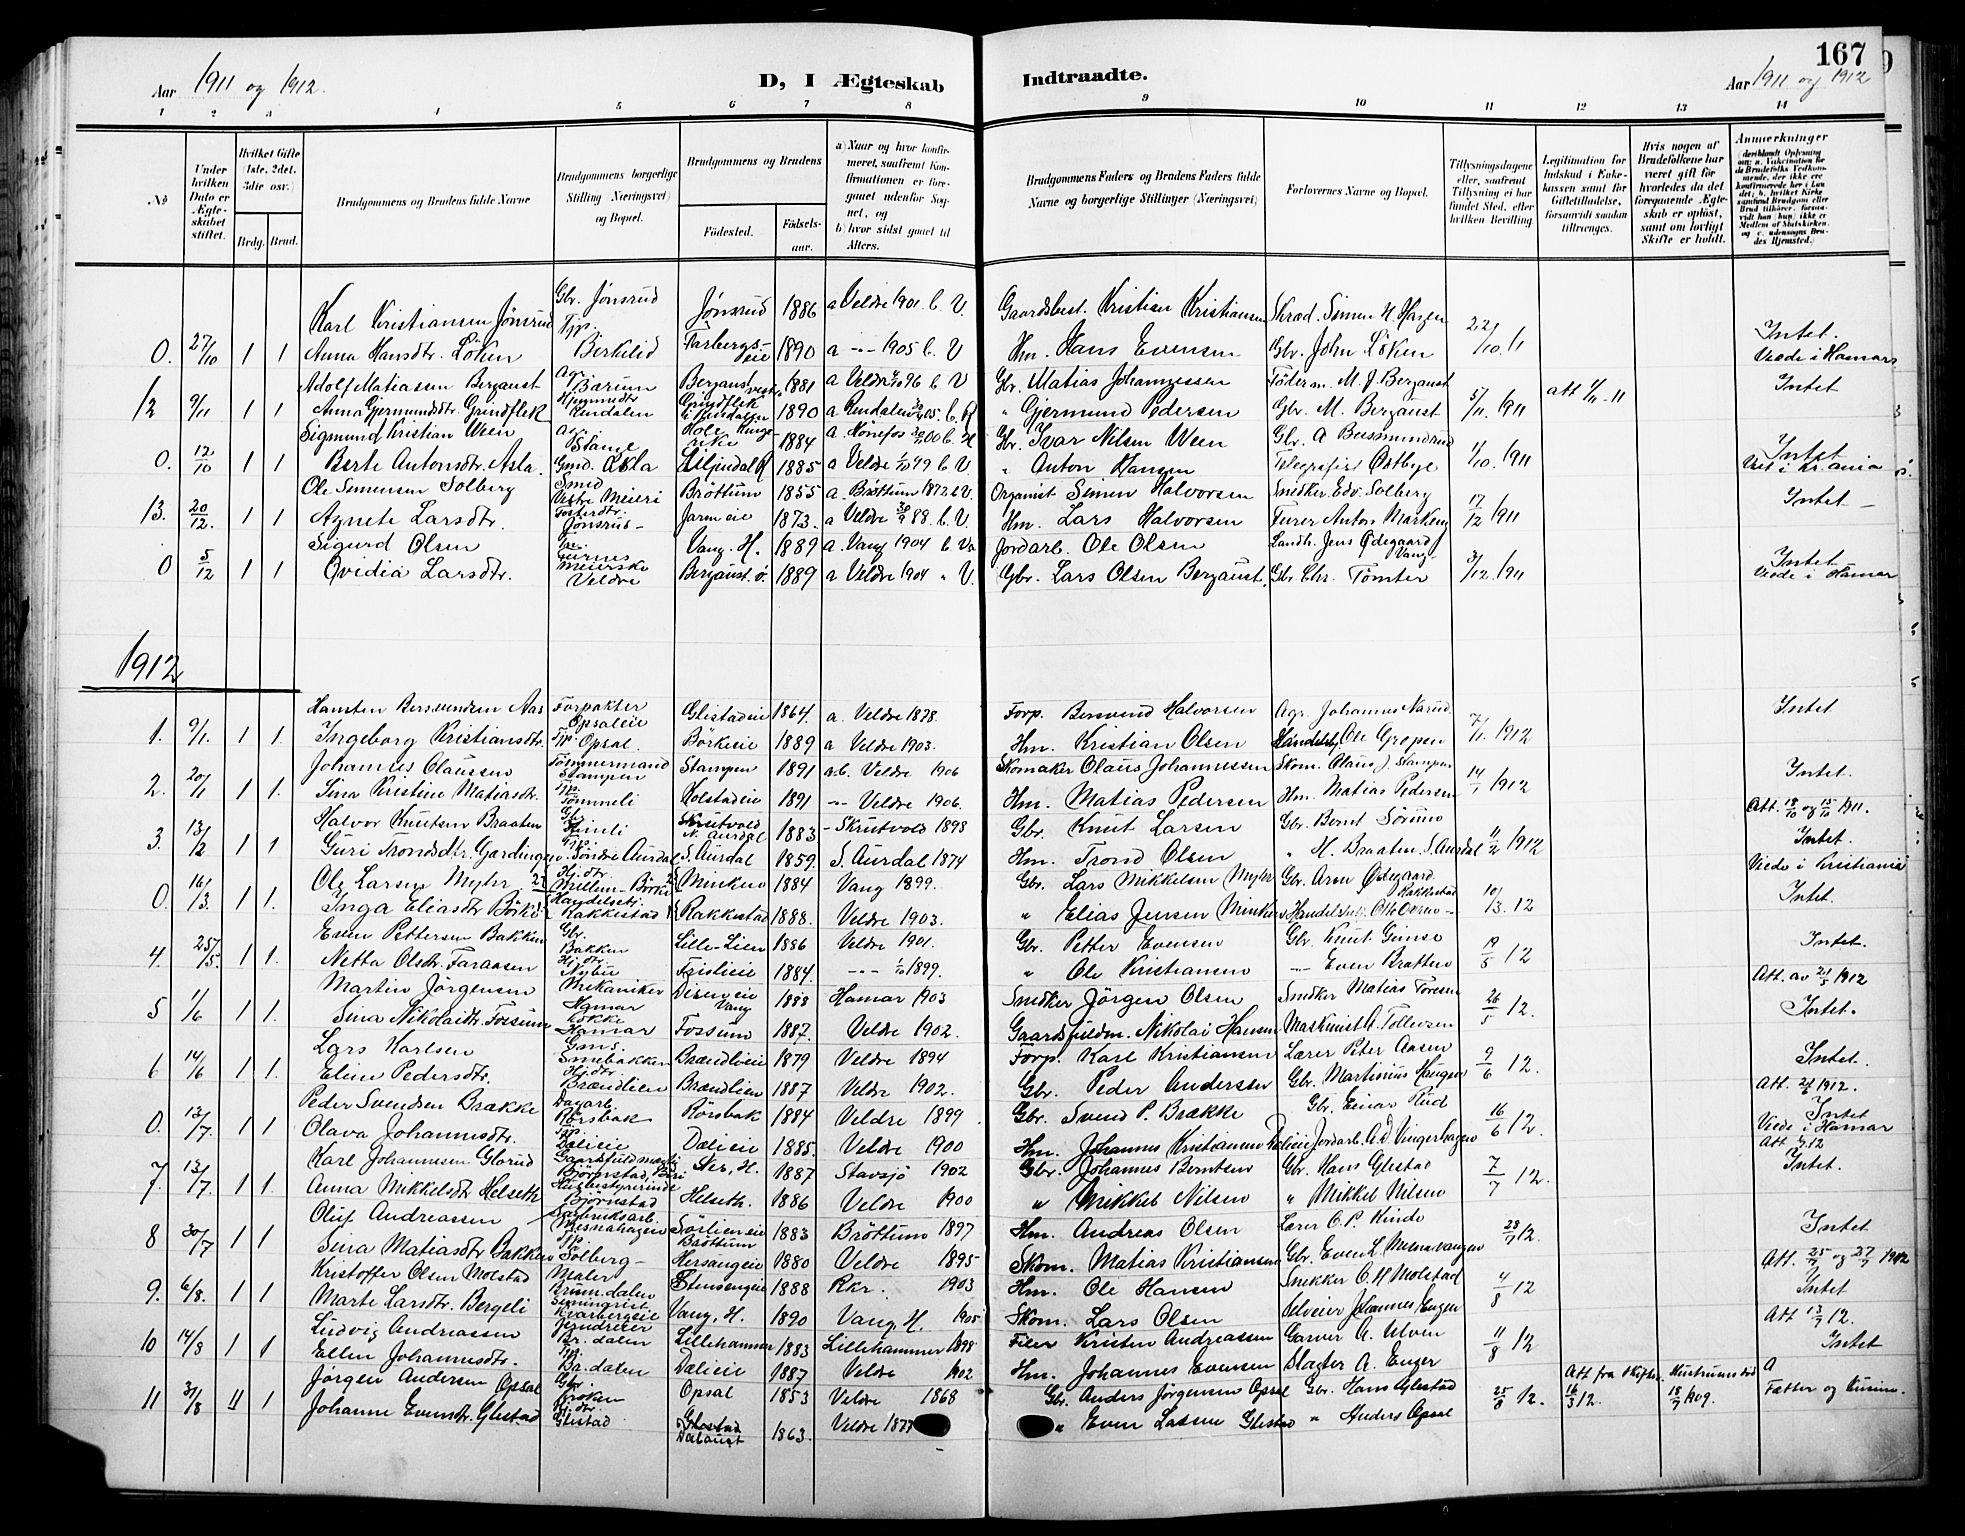 167
Aar 1911 og 1912.
D, I Ægteskab Indtraadte.
Aar 1911 og 1912
1 2 3 4 5 6 7 8 9 10 11 12 13 14
No
Under hvilken Dato er Ægteskabet stiftet.
Hvilket Gifte (1ste, 2det, 3die osv.)
Brdg. Brud.
Brudgommens og Brudens fulde Navne
Brudgommens borgerlige Stilling (Næringsvei) og Bopæl.
Brudgommens og Brudens
Fødested.
Fødselsaar.
a) Naar og hvor konfirmeret, saafremt Konfirmationen er foregaaet udenfor Sognet, og
b) hvor sidst gaaet til Alters.
Brudgommens Faders og Brudens Faders fulde Navne og borgerlige Stillinger (Næringsvei)
Forlovernes Navne og Bopæl.
Tillysningsdagene eller, saafremt Tillysning ei har fundet Sted, efter hvilken Bevilling
Legitimation for Indskud i Enkekassen samt for Giftetilladelse, forsaavidt saadan tiltrænges.
Hvis nogen af Brudefolkene har været gift før hvorledes da det foregaaende Ægteskab er opløst, samt om lovligt Skifte er holdt.
Anmærkninger
Karl Kristiansen Jönsrud Gbr. Jönsrud Jönsrud 1886 a Veldre 1901. b. V. Gaardsbest. Kristian Kristiansen Skræd. Simen H. Hagen 22/10 11 Intet.
0. 27/10 1 1 Anna Hansdtr. Löken Tjp. Berkelid Farbergseie 1890 a -"- 1905 b. V Hm. Hans Evensen Gbr. John Löken Viede i Hamar
Adolf Matiassen Bergaust Ag. Bærum Bergaust vestre 1881 a Veldre 96 b. V Gbr. Matias Johannessen Föderm. M. J. Bergaust 5/11 1911 att 1/11-11 Intet
12 9/11 1 1 Anna Gjermundsdtr. Grindflek Hjemmedtr Rendalen Grindflek i Rendalen 1890 a Rendalen 05. b. R " Gjermund Pedersen Gbr. M. Bergaust
Sigmund Kristian Ween Hole Ringerike 1884 a Hönefos 00 b. H Gbr. Ivar Nilsen Ween Gbr. A Busmundrud 1/10. 1911 Intet
0. 12/10 1 1 Berte Antonsdtr. Asla. Asla 1885 a Veldre 1/10 99 b. V. " Anton Hansen Telegrafist Østbye Viet i Kr.ania
Ole Simensen Solberg Smed Vestre Meieri Bröttum 1855 a. Bröttum 1872 b V. Organist Simen Halvorsen Snedker Edv. Solberg 17/12 1911 Intet
13. 20/12. 1 1 Agnete Larsdtr. Fosterdtr. Jönsrus- Jarmeie 1873. a Veldre 30/9 88. b. V. Hm. Lars Halvorsen Furer Anton Markeng
Sigurd Olsen Furnes Vang. H. 1889 a. Vang 1904 b. Va Jordarb. Ole Olsen Landh. Jens Ødegaard Vang 3/12. 1911 Intet
0 5/12 1 1 Ovedia Larsdtr. Meierske Veldre Bergaust. ö. 1889 a Veldre 1904 " V. Gbr. Lars Olsen Bergaust. Gbr. Chr. Tomter Viede i Hamar
1912
Hansten Bersvendsen Aas Forpakter Opsaleie Glistadeie 1864. a. Veldre 1878. Forp. Bersvend Halvorsen Agr. Johannes Narud 7/1 1912 Intet
1. 9/1. 1 1. Ingeborg Kristiansdtr. Tjp. Opsal. Börkeie 1889 a Veldre 1903. Hm. Kristian Olsen Handelsb. Ole Gropen
Johannes Olaussen Tömmermand Stampen Stampen 1891 a.b. Veldre 1906 Skomaker Olaus Johannessen Skom. Olaus J. Stampen 14/1 1912 Intet.
2. 20/1 1 1. Sina Kristine Matiasdtr. Tjp. Tömmeli Holstadeie 1891 -"- Veldre 1906. Hm. Matias Pedersen Hm. Matias Pedersen Att. 18/10 og 15/10 1911.
Halvor Knutsen Braaten Gbr. Heimli Skrutvold N. Aurdal 1883 - Skrutvold 1898 Gbr. Knut Larsen Gbr. Bernt Sörum 11/2 1912 Intet.
3. 13/2 1 1 Guri Trondsdtr. Gardingen Söndre Aurdal S. Aurdal 1859. S. Aurdal 1874 Hm. Trond Olsen " H. Braaten. S. Aurdal Viede i Kristiania
Ole Larsen Myhr Minken 1884 Vang 1899. Gbr. Lars Mikkelsen Myhr Gbr. Arne Ødegaard Rakkestad 10/3. 12 Intet.
0. 16/3. 1 1 Inga Eliasdtr. Börke Rakkestad Rakkestad 1888. Veldre 1903. " Elias Jensen Minken Handelsbetj. Otto Olsen
Even Pettersen Bakken Gbr. Bakken Lille-Lien 1886 Veldre 1901. Gbr. Petter Evensen Gbr. Knut Gimse 19/5 12 Intet.
4. 25/5. 1 1. Netta Olsdtr. Faraasen Hjdtr. Nybu Frislieie 1884. -"- 1/10 1899. " Ole Kristiansen -"- Even Bratten Att. av 21/5 1912
Martin Jörgensen Mekaniker Hamar Diseneie Vang 1888 Hamar 1903 Snedker Jörgen Olsen Snedker Matias Toresen 26/5 12. Intet.
5 1/6 1 1. Sina Nikolaidtr. Fossum Kokke Hamar Fossum 1887. Veldre 1902. Gaardsfuldm. Nikolai Hansen Maskinist A. Tollersen
Lars Karlsen Gms. Smebakken Brændlieie 1879 Veldre 1894 Forp. Karl Kristiansen Lærer Peter Aasen 9/6 12. Intet.
6 14/6 1 1. Eline Pedersdtr. Hjdtr. Brændlien Brændlien 1887 Veldre 1902. Gbr. Peder Andersen Gbr. Martinius Haugen Att. 1912.
Peder Svendsen Brække Dagarb. Rörsbak Rörsbak 1884 Veldre 1899 Gbr. Svend P. Brække Gbr. Einar Rud 16/6 12. Intet
0. 13/7. 1 1 Olava Johannesdtr. Tjp. Dælieie Dælieie 1885. Veldre 1900 Hm. Johannes Kristiansen Dælieie Jordarb. A. D. Vingerhagen Viede i Hamar
Karl Johannesen Glorud Gaardsfuldmægtig Björnstad Stei, H. 1887 Stavsjö 1902 Gbr. Johannes Berntsen Gbr. Hans Glestad 7/7 12. Intet.
7. 13/7. 1 1. Anna Mikkelsdtr. Helseth Husbestyrerinde Björnstad Helseth. 1886 Veldre 1900 " Mikkel Nilsen " Mikkel Nilsen
Oluf Andreassen Fabriksarb. Mesnahagen Sörlieneie Bröttum 1883 Bröttum 1897 Hm. Andreas Olsen Lærer O. P. Kinde 28/7 12. Intet
8 30/7 1 1. Sina Matiasdtr. Bakken Tjp. Solberg- Hersaugeie 1880 Veldre 1895 Skom. Matias Kristiansen Gbr. Even L. Mesnavangen Att. 25/7 og 27/7 1912
Kristoffer Olsen Molstad Maler Brum.dalen Stensengeie 1888 Rkr. 1903 Hm. Ole Hansen Snekker O. H Molstad 4/8 12 Intet
9. 6/8. 1 1 Marte Larsdtr. Bergeli Kvarbergeie Vang, H. 1890 Vang, H. 1905 Skom. Lars Olsen Selveier Johannes Enger Att 13/7 12.
Ludvig Andreassen Br. dalen Lillehammer 1883 Lillehammer 1898 Filer Kristen Andreassen Garver A. Ulven 11/8 12 Intet
10 14/8 1 1 Ellen Johannesdtr. Tjp. Br. dalen Dælieie 1887 Veldre 1902 Hm. Johannes Evensen Slagter A. Enger
Jörgen Andersen Opsal Gbr. Kröken Opsal 1853 Veldre 1868 Gbr. Anders Jörgensen Opsal Gbr. Hans Glestad 25/8 12. Att fra Skifter. 16/3 12. Hustrums död 18/7 1909. Fætter og Kusine.
11 31/8 II 1 Johanne Evensdtr. Glestad Hjdtr. Glistad Glestad 1863. Veldre 1877 " Even Larsen Glestad " Anders Opsal